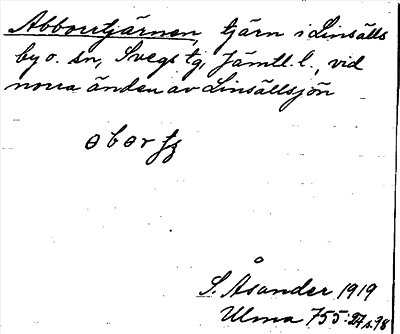 Abborrtjärnen, tjärn i Linsälls
by o. sn, Svegs tg, Jämtl. l., vid
norra änden av Linsällsjön
S. Åsander 1919
Ulma 755:27 s. 98